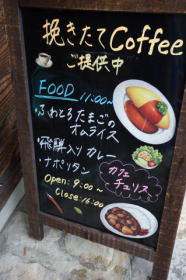 挽きたてCoffee
ご提供中
FOOD 11:00〜
・ふわとろたまごの
オムライス
・飛騨入りカレー
・ナポリタン
カフェ
チェリス
Open: 9:00〜
Close: 16:00